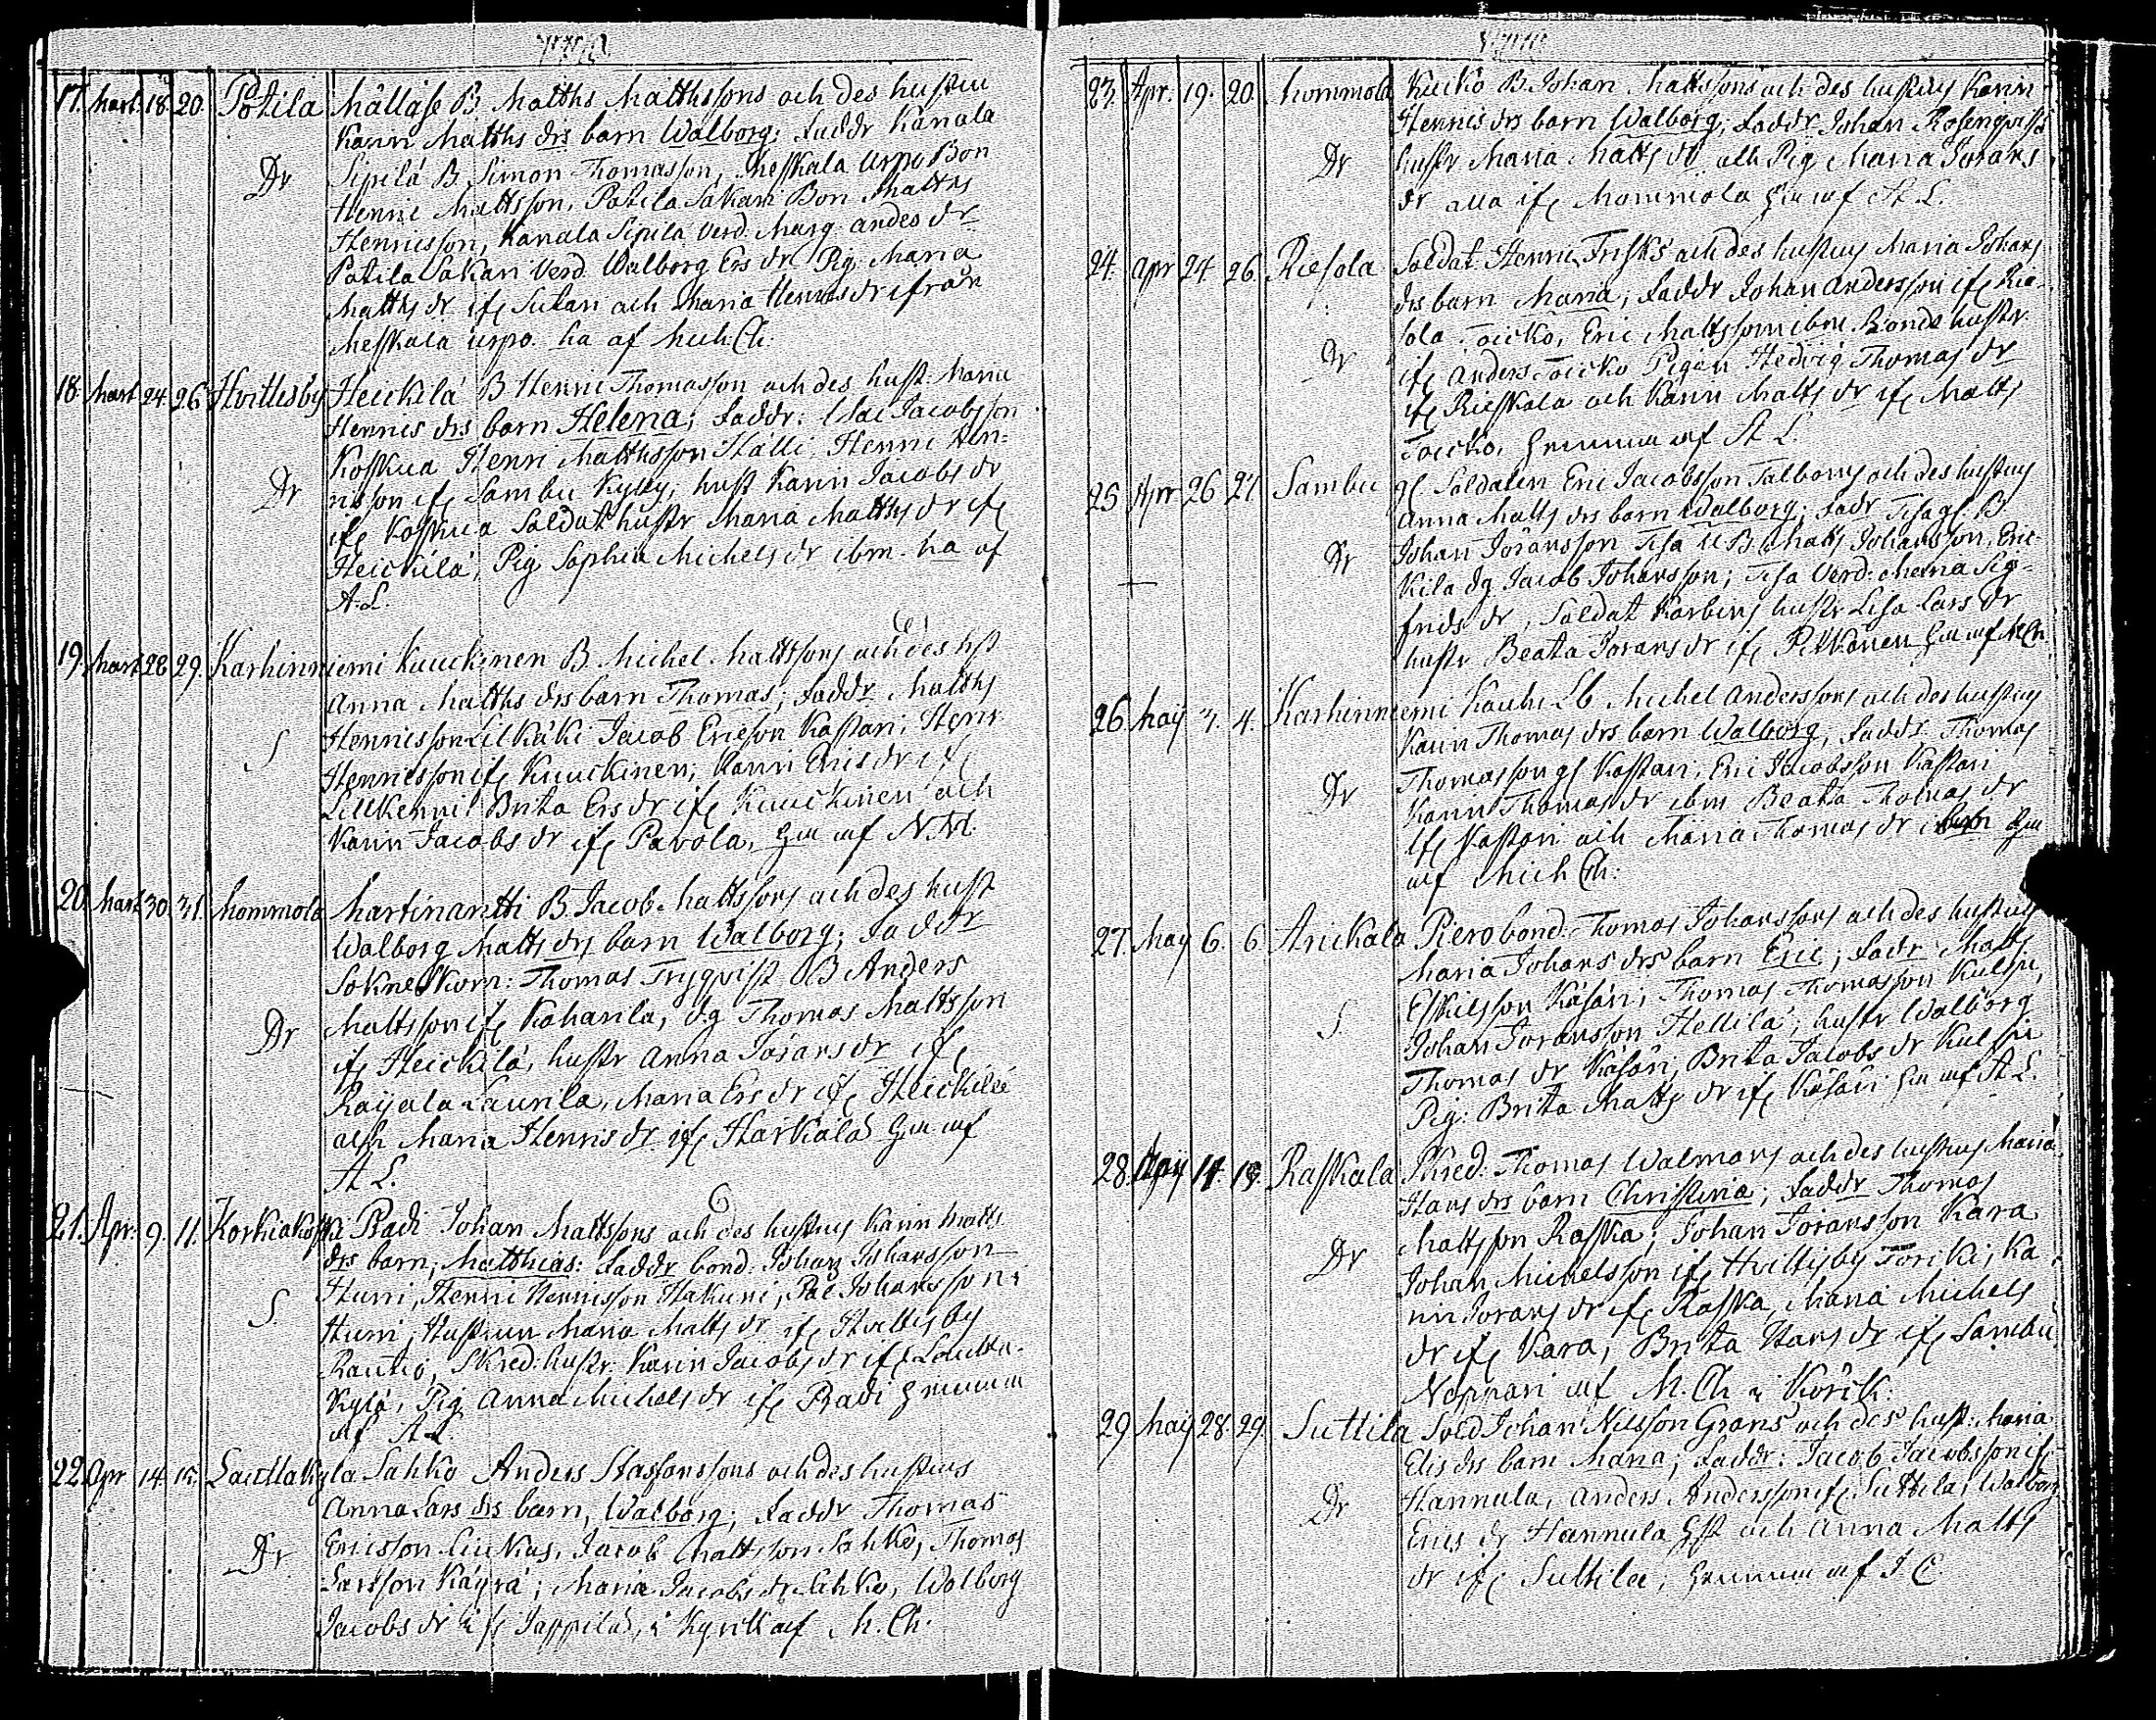 17. Mart. 18. 20. Potila Mällase B. Matths Matthssons och des hustru
Karin Matths drs barn Walborg; Faddr Kanala
Dr Sipilä B. Simon Thomasson, Meskala Urpo Bon
Henric Mattsson, Potila Sakari Bon Matths
Henricsson, Kanala Sipilä Verd: Marg. Anders dr
Potila Sakari Verd: Walborg Ers dr Pig. Maria
Matths dr if Sukari och Maria Henrics dr ifrån
Meskala Urpo. ha af Mich. Ch.
18. Mart 24. 26 Hvittisby Heickilä B Henric Thomasson och des hust. Maria
Henrics drs barn Helena; Faddr: Isac Jacobsson
Koskua Henri Matthsson Hälli, Henric Hen=
Dr ricsson if Sambu Kyly; hust Karin Jacobs dr
if Koskua Soldat hustr Maria Matths dr if
Heickilä, Pig Sophia Michels dr ibm. ha af
A. L.
19. Mart 28 29. Karhinniemi Kuuckinen B. Michel Mattsons och des hst
Anna Matths drs barn Thomas; Faddr Matths
S Henricsson Lilkäki Jacob Ericson Kastari; Henr
Henricsson if Kuuckinen; Karin Erics dr if
Brita Ers dr if Kuuckinen och
Karin Jacobs dr if Pavola, af N. N.
20. Mart 30. 31. Mommola Martinantti B. Jacob Mattsons och des hust
Walborg Matts drs barn Walborg; Faddr
Thomas Trygqvist B Anders
Dr Mattsson if Kaharila, dg Thomas Mattsson
if Heickilä, hustr Anna Jörans dr if
Raijala Laurila, Maria Ers dr if Heickilä
och Maria Henrics dr if Harkala af
A L.
21. Apr. 9. 11. Korkiakoski Pradi Johan Mattssons och des hustrus Karin Matts
drs barn; Matthias: Faddr bond. Johan Johansson
S Hurri, Henric Henricsson Hakuni, Johansson
Hurri, Hustrun Maria Matts dr if Hvittisby
Rautio, Skred: hustr: Karin Jacobs dr if Lautta-
kylä, Pig Anna Michels dr if Pradi
af A L.
22. Apr 14. 15. Lauttakyla Sahko Anders Staffanssons och des hustrus
Anna Lars drs barn, Walborg; Faddr Thomas
Dr. Ericsson Liukas, Jacob Mattsson Sahko, Thomas
Larsson Käyrä; Maria Jacobs dr Sahko, Walborg
Jacobs dr if Jappilä, i Kyrck af M. Ch.
23. Apr. 19. 20. Mommola Kucko B. Johan Mattssons och des hustrus Karin
Henrics drs barn Walborg; Faddr Johan Rosenqvist
Dr hustr Maria Matts dr och Pig Maria Jörans
dr alla if Mommola af A L.
24. Apr 24. 26. Riesola Soldat. Henric Frisks och des hustrus Maria Johans
drs barn Maria; Faddr Johan Andersson if Rie-
sola Toicko, Eric Mattsson ibm Bonde hustr
Dr if Anders Toicko Pigan Hedvig Thomas dr
if Rieskala och Karin Matts dr if Matts
Toicko, af A L.
25 Apr 26 27 Sambu gl. Soldaten Eric Jacobsson Talboms och des hustrus
Anna Matts drs barn Walborg; Fadr gl. B.
Dr Johan Jöransson B. Matts Johansson, Eric-
kila dg Jacob Johansson; Verd: Maria Sig-
frids dr, Soldat Karbins hustr Lisa Lars dr
hustr Beata Jörans dr if Pitkänen af M Ch.
26. Maij 3. 4. Karhinniemi Kauhi Lb Michel Anderssons och des hustrus
Karin Thomas drs barn Walborg, Faddr Thomas
Dr Thomasson gl Kastari, Eric Jacobsson Kastari
Karin Thomas dr ibm Beata Thomas dr
if Kastari och Maria Thomas dr ibm
af Mich Ch:
27. May 6. 6. Anckala Piero bond: Thomas Johanssons och des hustrus
Maria Johans drs barn Eric; Fadr Matts
S. Eskilsson Käsäri; Thomas Thomasson Kulsju,
Johan Jöransson Hellilä; hustr Walborg
Thomas dr Käsäri; Brita Jacobs dr Kulsju
Pig: Brita Matts dr if Käsäri af A L.
28. Maij 11. 13. Raskala Skred: Thomas Walmars och des hustrus Maria
Hans drs barn Christina; Faddr Thomas
Dr Mattsson Raska; Johan Jöransson Kara
Johan Michelsson if Hvittisby Torcki; Ka
rin Jörans dr if Raska, Maria Michels
dr if Kara; Brita Hans dr if Sambu
Noppari af M. Ch i Körck.
29 Maij 28. 29. Suttila Sved Johan Nilsson Grans och des hust: Maria
Elis drs barn Maria; Faddr: Jacob Jacobsson if
Dr Hannula, Anders Andersson if Suttila, Walborg
Erics dr Hannula och Anna Matts
dr if Suttila, af J. C.